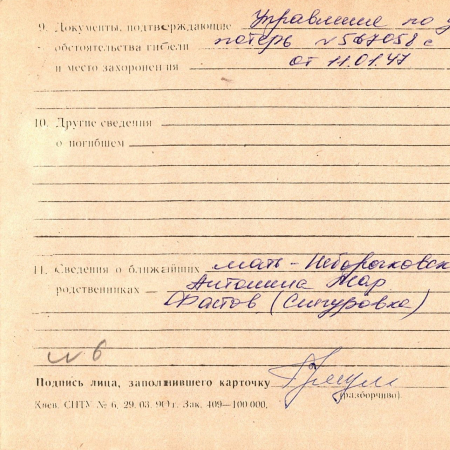 9. Документы, подтверждающие Управление по у
обстоятельства гибели потерь №567058с
и место захоронения от 11.01.47
10. Другие сведения
о погибшем
11. Сведения о ближайших мать -
родственниках — Антонина Мар
Фастов (Снигуровка)
№ 6
Подпись лица, заполнившего карточку
(разборчиво).
Киев. СПТУ № 6, 29. 03. 90 г. Зак. 409—100 000.